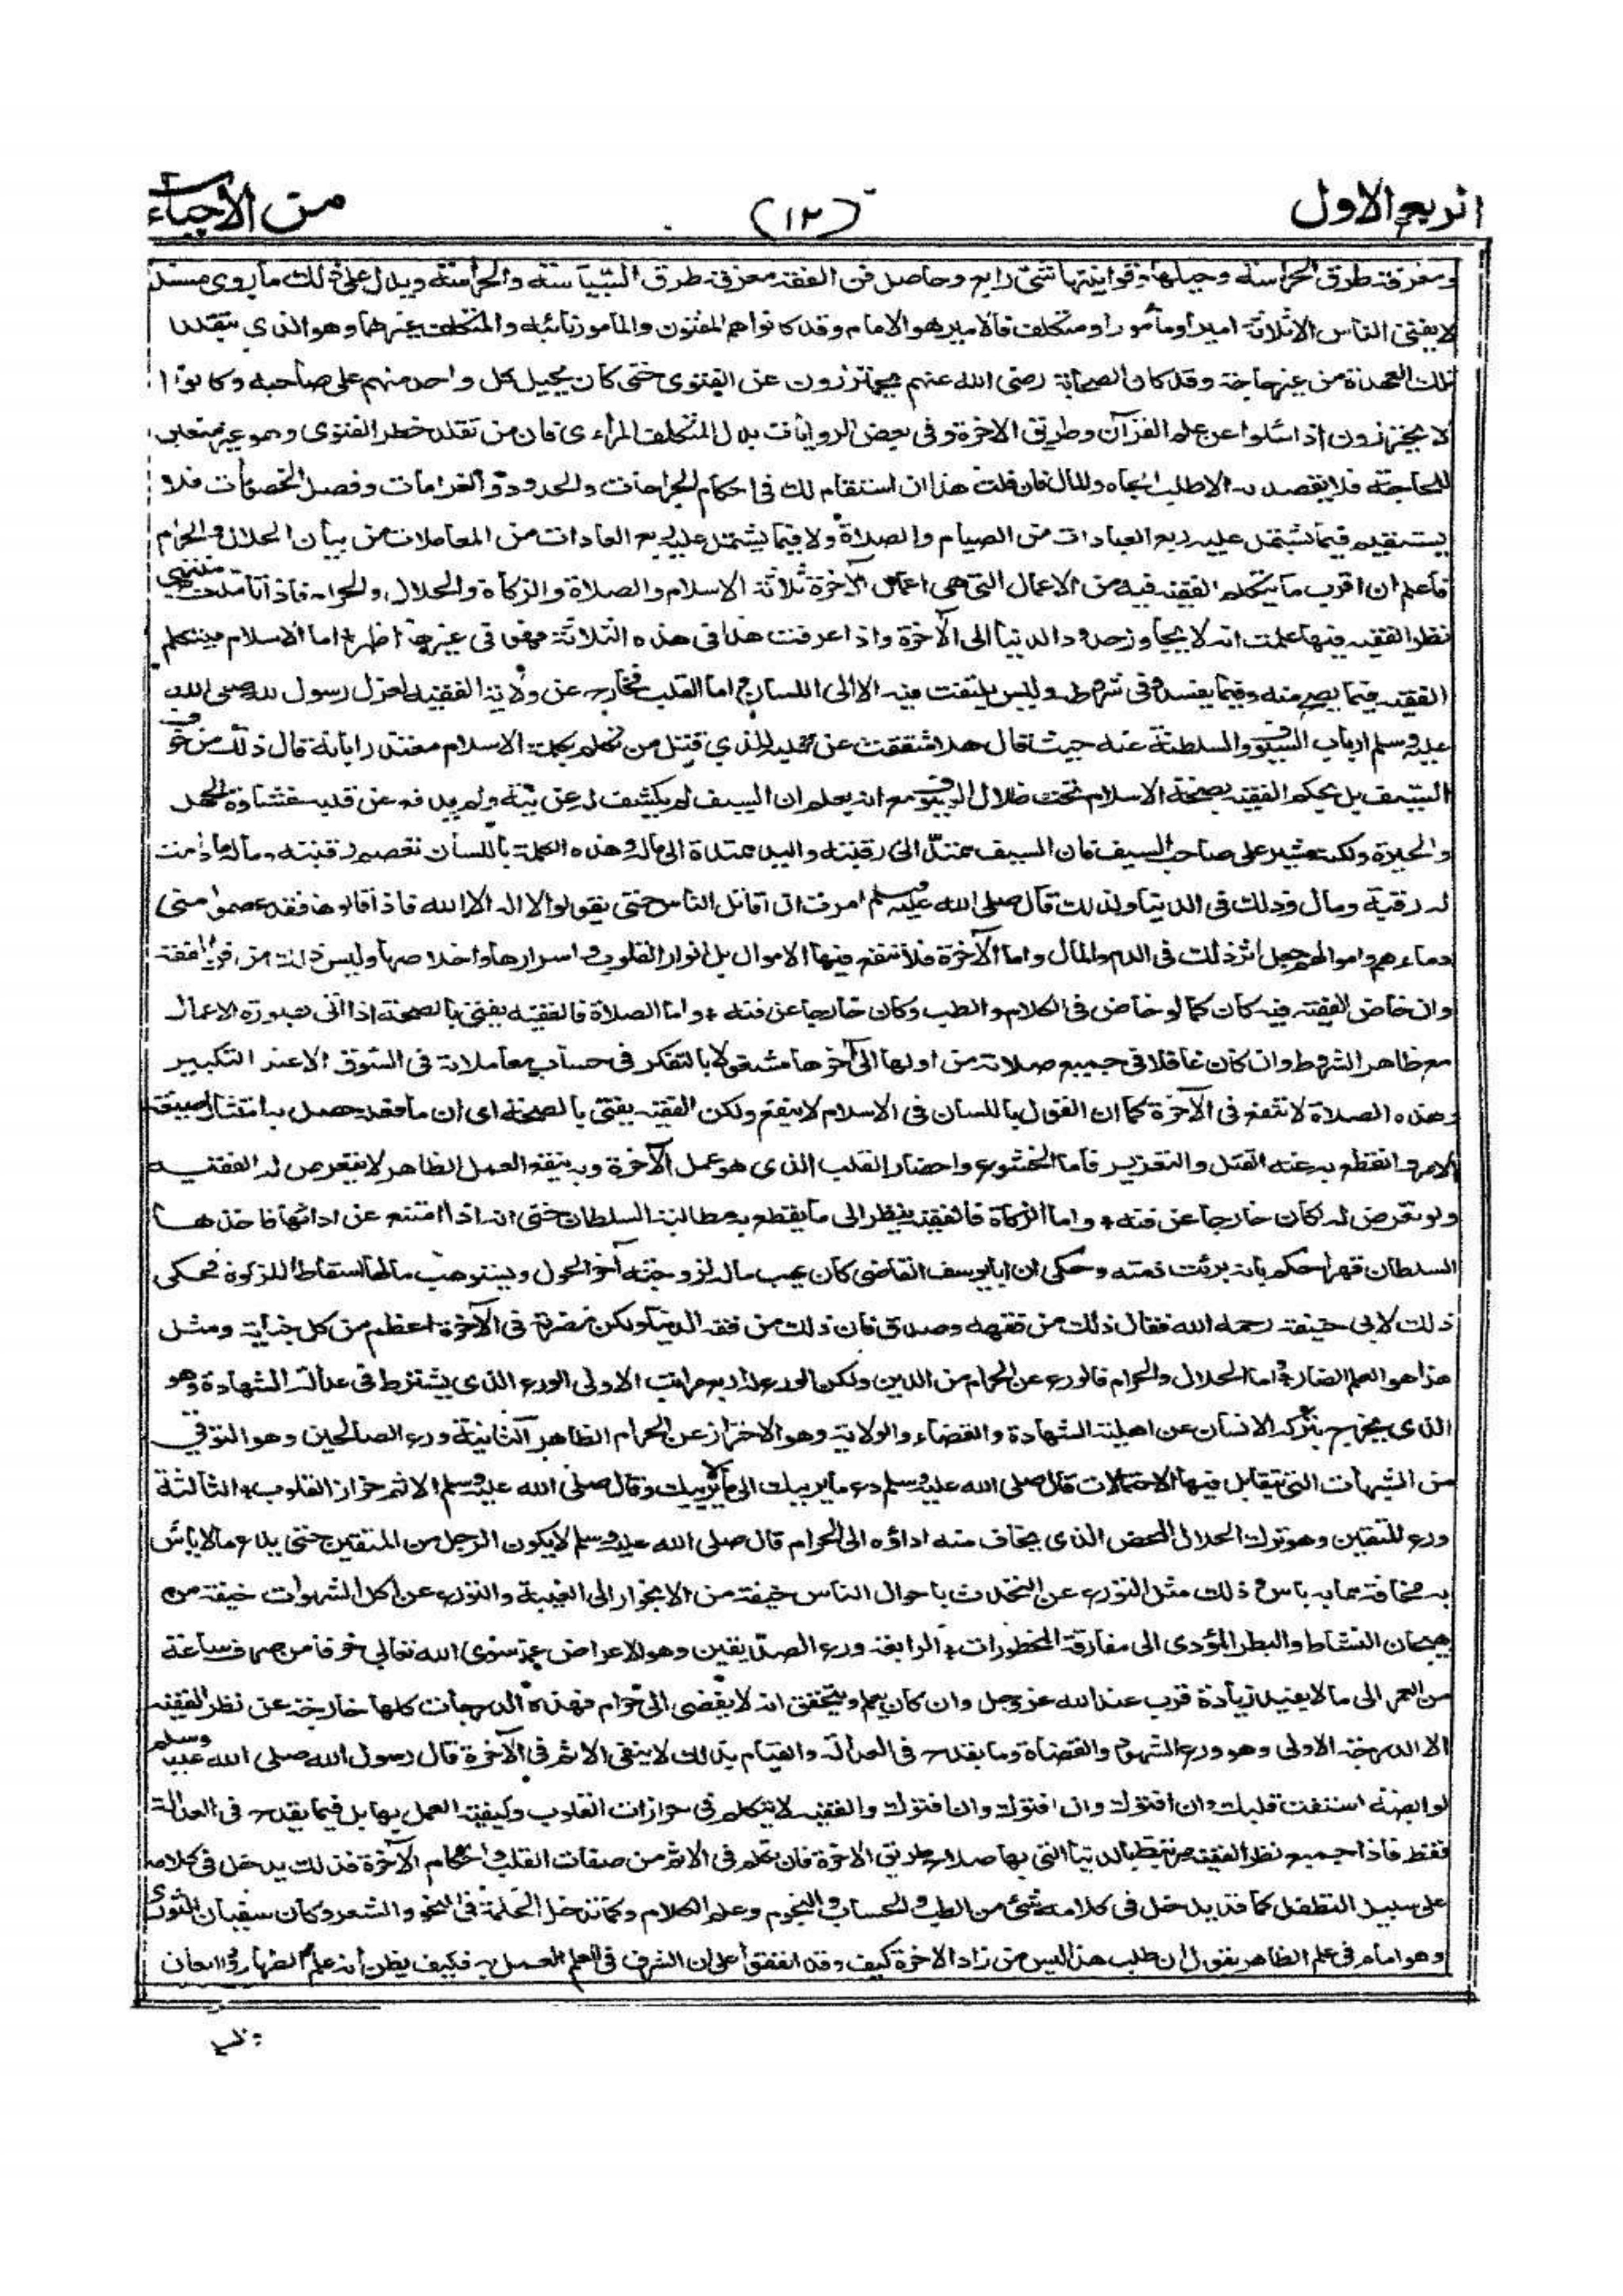 الربع الاول (١٢) من الاحياء
ومعرفة طرق الحراسة وحيلها وقوانينها شئ رابع وحاصل فن الفقه معرفة طرق السياسة والحراسة ويدل على ذلك ما روى مسندا
لا يفتى الناس الا ثلاثة امير او مأمور او متكلف فالامير هو الامام وقد كانوا هم المفتون والمأمور نائبه والمتكلف غيرهما وهو الذى يتقلد
تلك العهدة من غير حاجة وقد كان الصحابة رضى الله عنهم يحترزون عن الفتوى حتى كان يحيل كل واحد منهم على صاحبه وكانوا
لا يحترزون اذا سئلوا عن علم القرآن وطريق الاخرة وفى بعض الروايات بدل المتكلف المرائى فان من تقلد خطر الفتوى وهو غير متعين
للحاجة فلا يقصد به الا طلب الجاه والمال فان قلت هذا ان استقام لك فى احكام الجراحات والحدود والغرامات وفصل الخصومات فلا
يستقيم فيما يشتمل عليه ربع العبادات من الصيام والصلاة ولا فيما يشتمل عليه ربع العادات من المعاملات من بيان الحلال والحرام
فاعلم ان اقرب ما يتكلم الفقيه فيه من الاعمال التى هى اعمال الآخرة ثلاثة الاسلام والصلاة والزكاة والحلال والحرام فاذا تأملت منتهى
نظر الفقيه فيها علمت انه لا يجاوز حدود الدنيا الى الآخرة واذا عرفت هذا فى هذه الثلاثة فهو فى غيرها اظهر * اما الاسلام فيتكلم
الفقيه فيما يصح منه وفيما يفسد وفى شروطه وليس يلتفت فيه الا الى اللسان واما القلب فخارج عن ولاية الفقيه لعزل رسول الله صلى الله
عليه وسلم ارباب السيوف والسلطنة عنه حيث قال هلا شققت عن قلبه للذى قتل من تكلم بكلمة الاسلام معتذرا بانه قال ذلك من خوف
السيف بل يحكم الفقيه بصحة الاسلام تحت ظلال السيوف مع انه يعلم ان السيف لم يكشف له عن نيته ولم يدفع عن قلبه غشاوة الجهل
والحيرة ولكنه مشير على صاحب السيف فان السيف ممتد الى رقبته واليد ممتدة الى ماله وهذه الكلمة باللسان تعصم رقبته وماله ما دامت
له رقبة ومال وذلك فى الدنيا ولذلك قال صلى الله عليه وسلم امرت ان اقاتل الناس حتى يقولوا لا اله الا الله فاذا قالوها فقد عصموا منى
دماءهم واموالهم جعل اثر ذلك فى الدم والمال واما الآخرة فلا تنفع فيها الاموال بل انوار القلوب واسرارها واخلاصها وليس ذلك من فن الفقه
وان خاض الفقيه فيه كان كما لو خاض فى الكلام والطب وكان خارجا عن فنه * واما الصلاة فالفقيه يفتى بالصحة اذا اتى بصورة الاعمال
مع ظاهر الشروط وان كان غافلا فى جميع صلاته من اولها الى آخرها مشغولا بالتفكر فى حساب معاملاته فى السوق الا عند التكبير
وهذه الصلاة لا تنفع فى الآخرة كما ان القول باللسان فى الاسلام لا ينفع ولكن الفقيه يفتى بالصحة اى ان ما فعله حصل به امتثال صيغة
الامر وانقطع به عنه القتل والتعزير فاما الخشوع واحضار القلب الذى هو عمل الآخرة وبه ينفع العمل الظاهر لا يتعرض له الفقيه
ولو تعرض له لكان خارجا عن فنه * واما الزكاة فالفقيه ينظر الى ما يقطع به مطالبة السلطان حتى انه اذا امتنع عن ادائها فاخذها
السلطان قهرا حكم بانه برئت ذمته وحكى ان ابا يوسف القاضى كان يهب ماله لزوجته آخر الحول ويستوهب مالها اسقاطا للزكوة فحكى
ذلك لابى حنيفة رحمه الله فقال ذلك من فقهه وصدق فان ذلك من فقه الدنيا ولكن مضرته فى الآخرة اعظم من كل جناية ومثل
هذا هو العلم الضار * واما الحلال والحرام فالورع عن الحرام من الدين ولكن الورع له اربع مراتب الاولى الورع الذى يشترط فى عدالة الشهادة وهو
الذى يخرج بتركه الانسان عن اهلية الشهادة والقضاء والولاية وهو الاحتراز عن الحرام الظاهر الثانية ورع الصالحين وهو التوقى
من الشبهات التى يتقابل فيها الاحتمالات قال صلى الله عليه وسلم دع ما يريبك الى ما لا يريبك وقال صلى الله عليه وسلم الاثم حزاز القلوب * الثالثة
ورع المتقين وهو ترك الحلال المحض الذى يخاف منه اداؤه الى الحرام قال صلى الله عليه وسلم لا يكون الرجل من المتقين حتى يدع ما لا بأس
به مخافة مما به باس وذلك مثل التورع عن التحدث باحوال الناس خيفة من الانجرار الى الغيبة والتورع عن اكل الشهوات خيفة من
هيجان النشاط والبطر المؤدى الى مقارفة المحظورات * الرابعة ورع الصديقين وهو الاعراض عما سوى الله تعالى خوفا من صرف ساعة
من العمر الى ما لا يفيد زيادة قرب عند الله عز وجل وان كان يعلم ويتحقق انه لا يفضى الى حرام فهذه الدرجات كلها خارجة عن نظر الفقيه
الا الدرجة الاولى وهو ورع الشهود والقضاة وما يقدح فى العدالة والقيام بذلك لا ينفى الاثم فى الآخرة قال رسول الله صلى الله عليه وسلم
لوابصة استفت قلبك وان افتوك وان افتوك وان افتوك والفقيه لا يتكلم فى حزازات القلوب وكيفية العمل بها بل فيما يقدح فى العدالة
فقط فاذا جميع نظر الفقيه مرتبط بالدنيا التى بها صلاح طريق الاخرة فان تكلم فى الاثم من صفات القلب واحكام الآخرة فذلك يدخل فى كلامه
على سبيل التطفل كما قد يدخل فى كلامه شئ من الطب والحساب والنجوم وعلم الكلام وكما تدخل الحكمة فى النحو والشعر وكان سفيان الثورى
وهو امام فى علم الظاهر يقول ان طلب هذا ليس من زاد الاخرة كيف وقد اتفقوا على ان الشرف فى العلم العمل به فكيف يظن انه علم الظهار واللعان